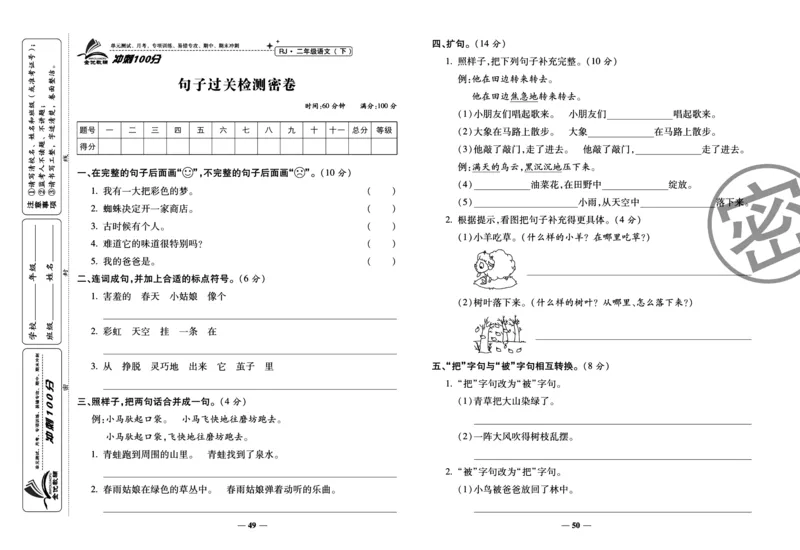 注意事项
①请写清校名、姓名和班级(或准考证号);
②监考人不读题、不讲题;
③请书写工整,字迹清楚,卷面整洁。
学校________ 年级________
班级________ 姓名________
密 封 线
单元测试、月考、专项训练、易错专攻、期中、期末冲刺
冲刺100分
金优教辅
金优教辅
单元测试、月考、专项训练、易错专攻、期中、期末冲刺
冲刺100分
RJ·二年级语文(下)
句子过关检测密卷
时间:60分钟 满分:100分
题号 一 二 三 四 五 六 七 八 九 十 十一 总分 等级
得分
一、在完整的句子后面画“”,不完整的句子后面画“”。(10分)
1. 我有一大把彩色的梦。 ( )
2. 蜘蛛决定开一家商店。 ( )
3. 古时候有个人。 ( )
4. 难道它的味道很特别吗? ( )
5. 我的爸爸是。 ( )
二、连词成句,并加上合适的标点符号。(6分)
1. 害羞的 春天 小姑娘 像个
2. 彩虹 天空 挂 一条 在
3. 从 挣脱 灵巧地 出来 它 茧子 里
三、照样子,把两句话合并成一句。(4分)
例:小马驮起口袋。 小马飞快地往磨坊跑去。
小马驮起口袋,飞快地往磨坊跑去。
1. 青蛙跑到周围的山里。 青蛙找到了泉水。
2. 春雨姑娘在绿色的草丛中。 春雨姑娘弹着动听的乐曲。
— 49 —
四、扩句。(14分)
1. 照样子,把下列句子补充完整。(10分)
例:他在田边转来转去。
他在田边焦急地转来转去。
(1)小朋友们唱起歌来。 小朋友们____________唱起歌来。
(2)大象在马路上散步。 大象____________在马路上散步。
(3)他敲了敲门,走了进去。 他敲了敲门,____________走了进去。
例:满天的乌云,黑沉沉地压下来。
(4)__________油菜花,在田野中____________绽放。
(5)__________________小雨,从天空中____________落下来。
2. 根据提示,看图把句子补充得更具体。(4分)
(1)小羊吃草。(什么样的小羊? 在哪里吃草?)
(2)树叶落下来。(什么样的树叶? 从哪里、怎么落下来?)
五、“把”字句与“被”字句相互转换。(8分)
1. “把”字句改为“被”字句。
(1)青草把大山染绿了。
(2)一阵大风吹得树枝乱摆。
2. “被”字句改为“把”字句。
(1)小鸟被爸爸放回了林中。
— 50 —
密